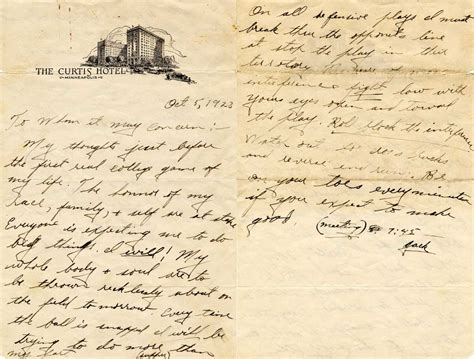 THE CURTIS HOTEL
MINNEAPOLIS
Oct 5, 1923
To Whom it may concern:
My thoughts just before
the first real college game of
my life. The honor of my
race, family, & self are at stake
Everyone is expecting me to do
big things. I will! My
whole body & soul are to
be thrown recklessly about on
the field tomorrow. Every time
the ball is snaped I will be
trying to do more than
my part.
On all defensive plays I must
break thru the opponents line
stop the play in their
territory
interference fight low with
your eyes open and toward
the play. Roll block the interference
Watch out for cross bucks
and reverse end runs. Be
on your toes every minute
if you expect to make
good.
(meeting) 7:45
Jack